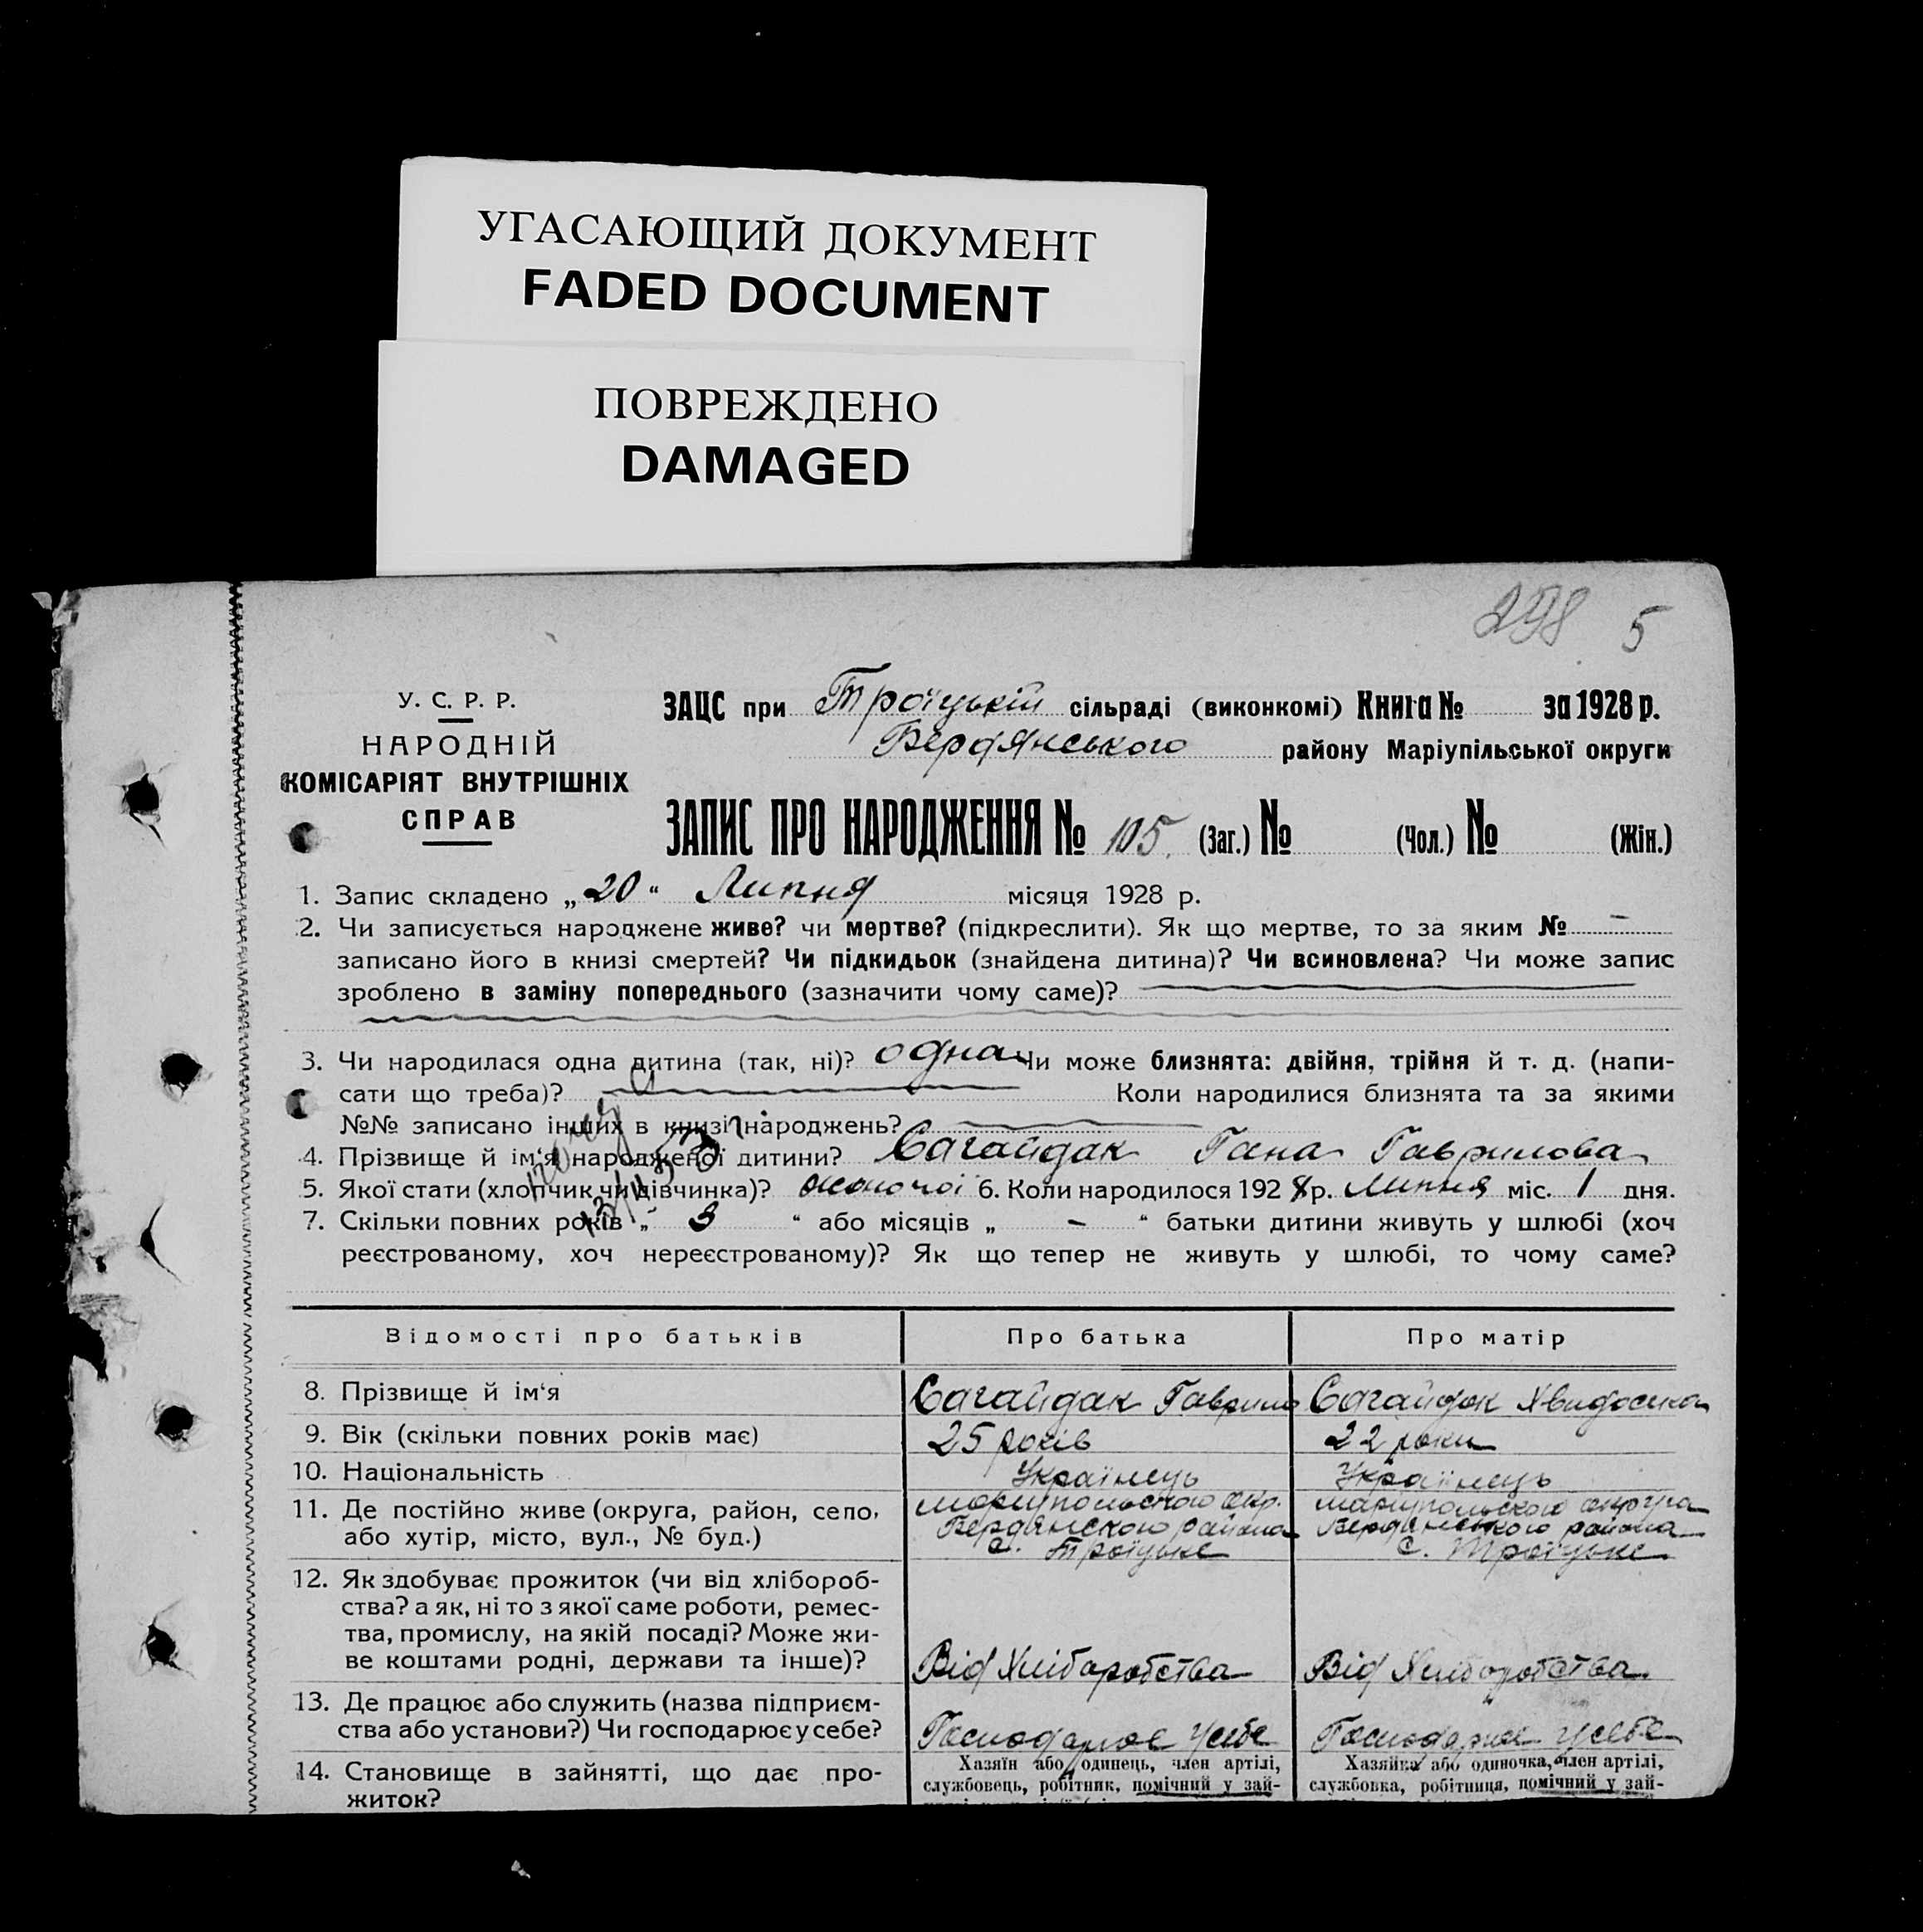 УГАСАЮЩИЙ ДОКУМЕНТ
FADED DOCUMENT
ПОВРЕЖДЕНО
DAMAGED
298 5
У. С. Р. Р.
НАРОДНІЙ
КОМІСАРІЯТ ВНУТРІШНІХ
СПРАВ
ЗАЦС при Троїцькій сільраді (виконкомі) Книга № за 1928 р.
Бердянського району Маріупільської округи
ЗАПИС ПРО НАРОДЖЕННЯ № 105. (Заг.) № (Чол.) № (Жін.)
1. Запис складено „20“ Липня місяця 1928 р.
2. Чи записується народжене живе? чи мертве? (підкреслити). Як що мертве, то за яким № —
записано його в книзі смертей? Чи підкидьок (знайдена дитина)? Чи всиновлена? Чи може запис
зроблено в заміну попереднього (зазначити чому саме)?
3. Чи народилася одна дитина (так, ні)? одна Чи може близнята: двійня, трійня й т. д. (напи-
сати що треба)? Коли народилися близнята та за якими
№№ записано інших в книзі народжень?
4. Прізвище й ім‘я народженої дитини? Сагайдак Гана Гаврилова
5. Якої стати (хлопчик чи дівчинка)? жоночої 6. Коли народилося 1928 р. Липня міс. 1 дня.
7. Скільки повних років „ 3 “ або місяців „ – “ батьки дитини живуть у шлюбі (хоч
реєстрованому, хоч нереєстрованому)? Як що тепер не живуть у шлюбі, то чому саме?
Відомості про батьків Про батька Про матір
8. Прізвище й ім‘я Сагайдак Гаврило Сагайдак Хвидосика
9. Вік (скільки повних років має) 25 років 22 роки
10. Національність Українець Українець
11. Де постійно живе (округа, район, село, Маріупольского окр. Маріупольского округа
або хутір, місто, вул., № буд.) Бердянского района Бердянського района
с. Троїцьке с. Троїцьке
12. Як здобуває прожиток (чи від хлібороб-
ства? а як, ні то з якої саме роботи, ремес-
тва, промислу, на якій посаді? Може жи-
ве коштами родні, держави та інше)? Від Хлібаробства Від Хліборобства
13. Де працює або служить (назва підприєм-
ства або установи?) Чи господарює у себе? Господарює Усебе Господарює Усебе
14. Становище в зайнятті, що дає про- Хазяїн або одинець, член артілі, Хазяйка або одиночка, член артілі,
житок? службовець, робітник, помічний у зай- службовка, робітниця, помічний у зай-